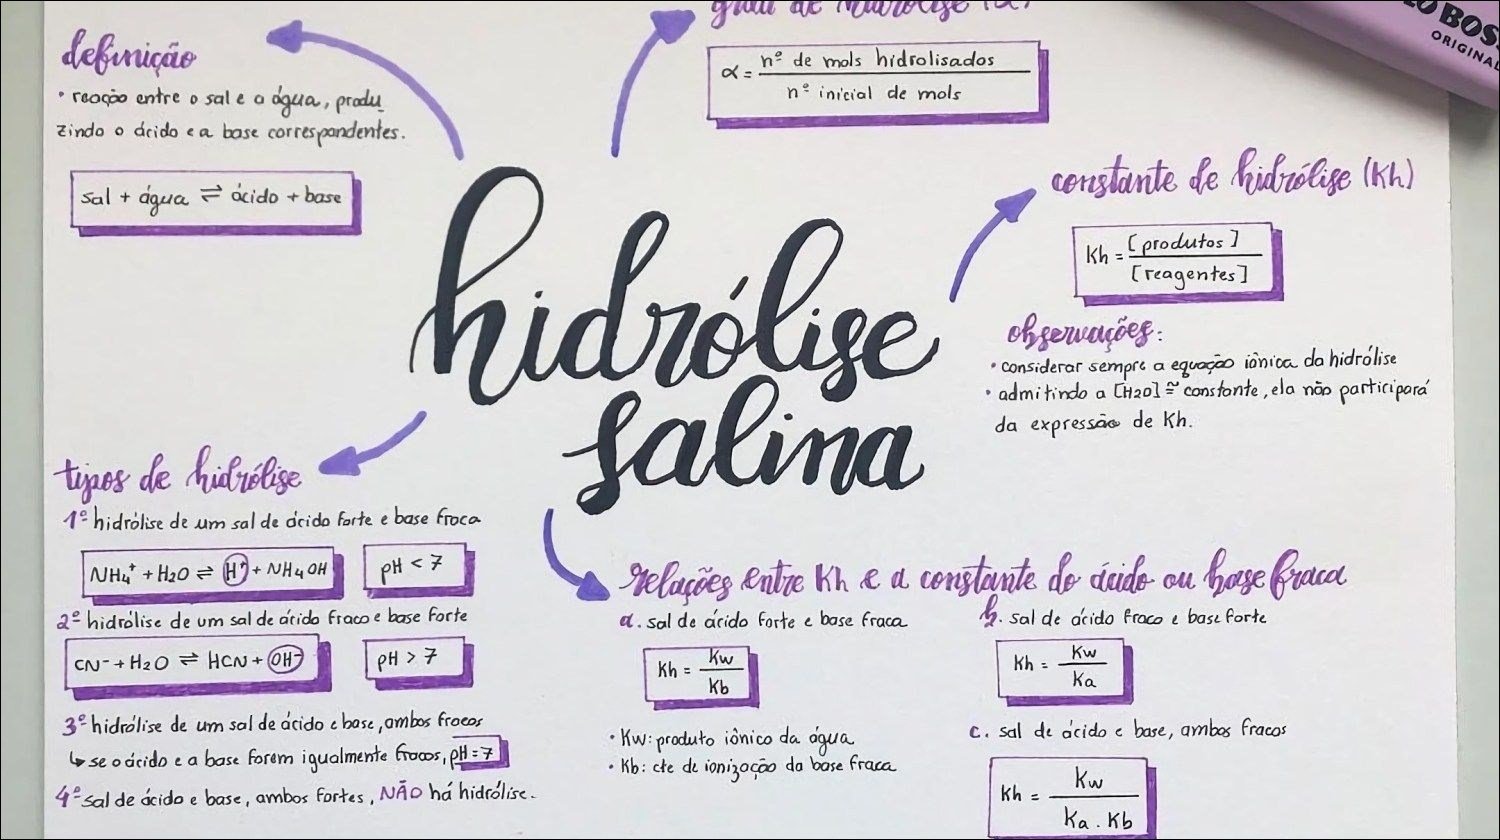 definição
• reação entre o sal e a água, produ
zindo o ácido e a base correspondentes.
sal + água ⇌ ácido + base
grau de hidrólise (α)
α = nº de mols hidrolisados
nº inicial de mols
LO BOSS
ORIGINAL
constante de hidrólise (Kh)
Kh = [produtos]
[reagentes]
observações:
• considerar sempre a equação iônica da hidrólise
• admitindo a [H2O] ≅ constante, ela não participará
da expressão de Kh.
hidrólise
salina
tipos de hidrólise
1º hidrólise de um sal de ácido forte e base fraca
NH4⁺ + H2O ⇌ H⁺ + NH4OH
pH < 7
2º hidrólise de um sal de ácido fraco e base forte
CN⁻ + H2O ⇌ HCN + OH⁻
pH > 7
3º hidrólise de um sal de ácido e base, ambos fracos
↳ se o ácido e a base forem igualmente fracos, pH = 7
4º sal de ácido e base, ambos fortes, NÃO há hidrólise.
relações entre Kh e a constante do ácido ou base fraca
a. sal de ácido forte e base fraca
Kh = Kw
Kb
• Kw: produto iônico da água
• Kb: cte de ionização da base fraca
b. sal de ácido fraco e base forte
Kh = Kw
Ka
c. sal de ácido e base, ambos fracos
Kh = Kw
Ka . Kb